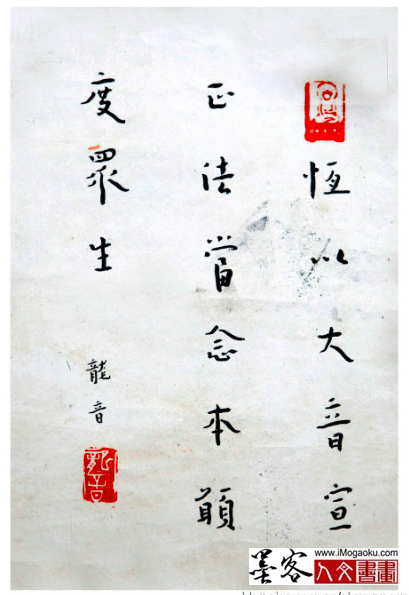 恆以大音宣
正法當念本願
度眾生
龍音
墨客
www.iMogaoku.com
人文書畫